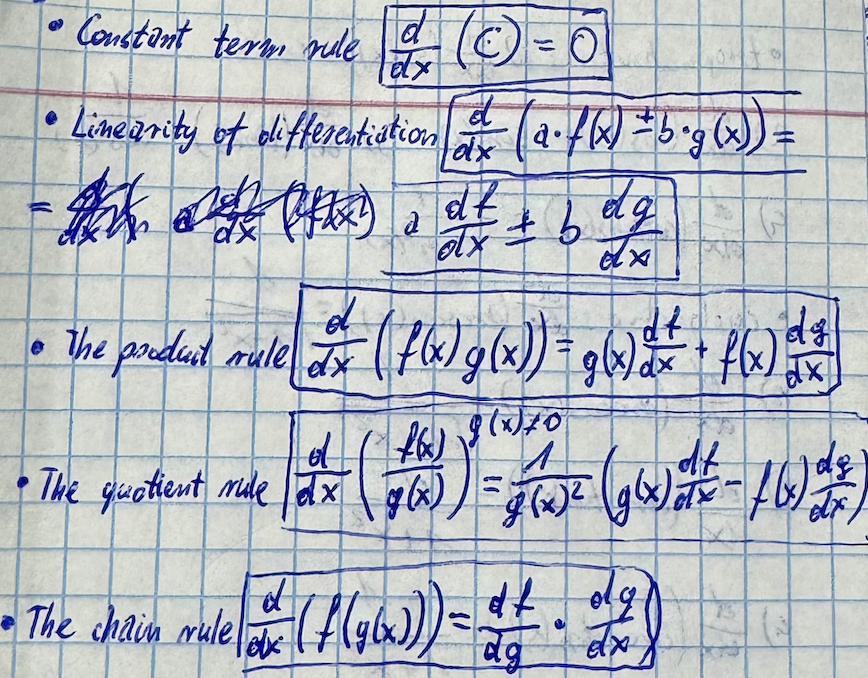 • Constant term rule d/dx (C) = 0
• Linearity of differentiation d/dx (a·f(x) ± b·g(x)) =
= a df/dx ± b dg/dx
• The product rule d/dx (f(x) g(x)) = g(x) df/dx + f(x) dg/dx
• The quotient rule d/dx (f(x)/g(x)) g(x)≠0 = 1/g(x)² (g(x) df/dx - f(x) dg/dx)
• The chain rule d/dx (f(g(x))) = df/dg · dg/dx